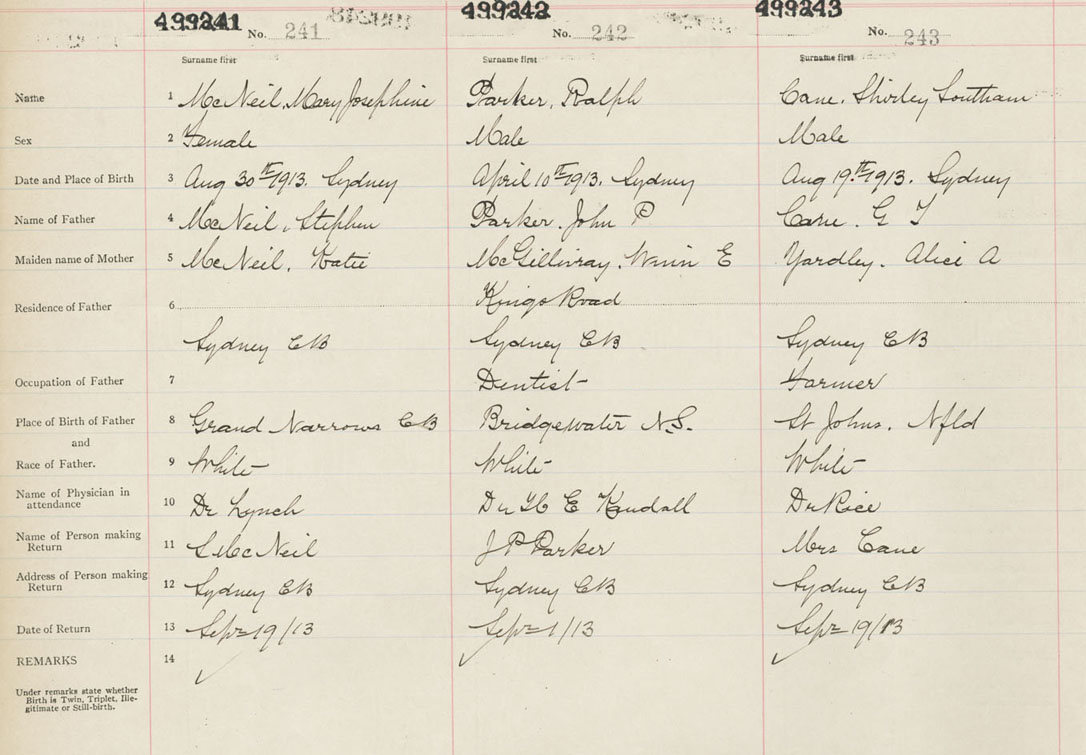 499241 499242 499243
No. 241 No. 242 No. 243
Surname first Surname first Surname first
Name 1 McNeil, Mary Josephine Parker, Ralph Cane. Shirley Southam
Sex 2 Female Male Male
Date and Place of Birth 3 Aug 30th 1913. Sydney April 10th 1913. Sydney Aug 19th 1913. Sydney
Name of Father 4 McNeil, Stephen Parker. John P Cane. G T
Maiden name of Mother 5 McNeil. Katie McGillivray. Winn E Yardley. Alice A
Residence of Father 6 Kings Road
Sydney CB Sydney CB Sydney CB
Occupation of Father 7 Dentist Farmer
Place of Birth of Father 8 Grand Narrows CB Bridgewater N.S. St Johns. Nfld
and
Race of Father. 9 White White White
Name of Physician in
attendance 10 Dr Lynch Dr E Kendall Dr Rice
Name of Person making
Return 11 S McNeil J P Parker Mrs Cane
Address of Person making
Return 12 Sydney CB Sydney CB Sydney CB
Date of Return 13 Sept 19/13 Sept 1/13 Sept 19/13
REMARKS 14
Under remarks state whether
Birth is Twin, Triplet, Ille-
gitimate or Still-birth.